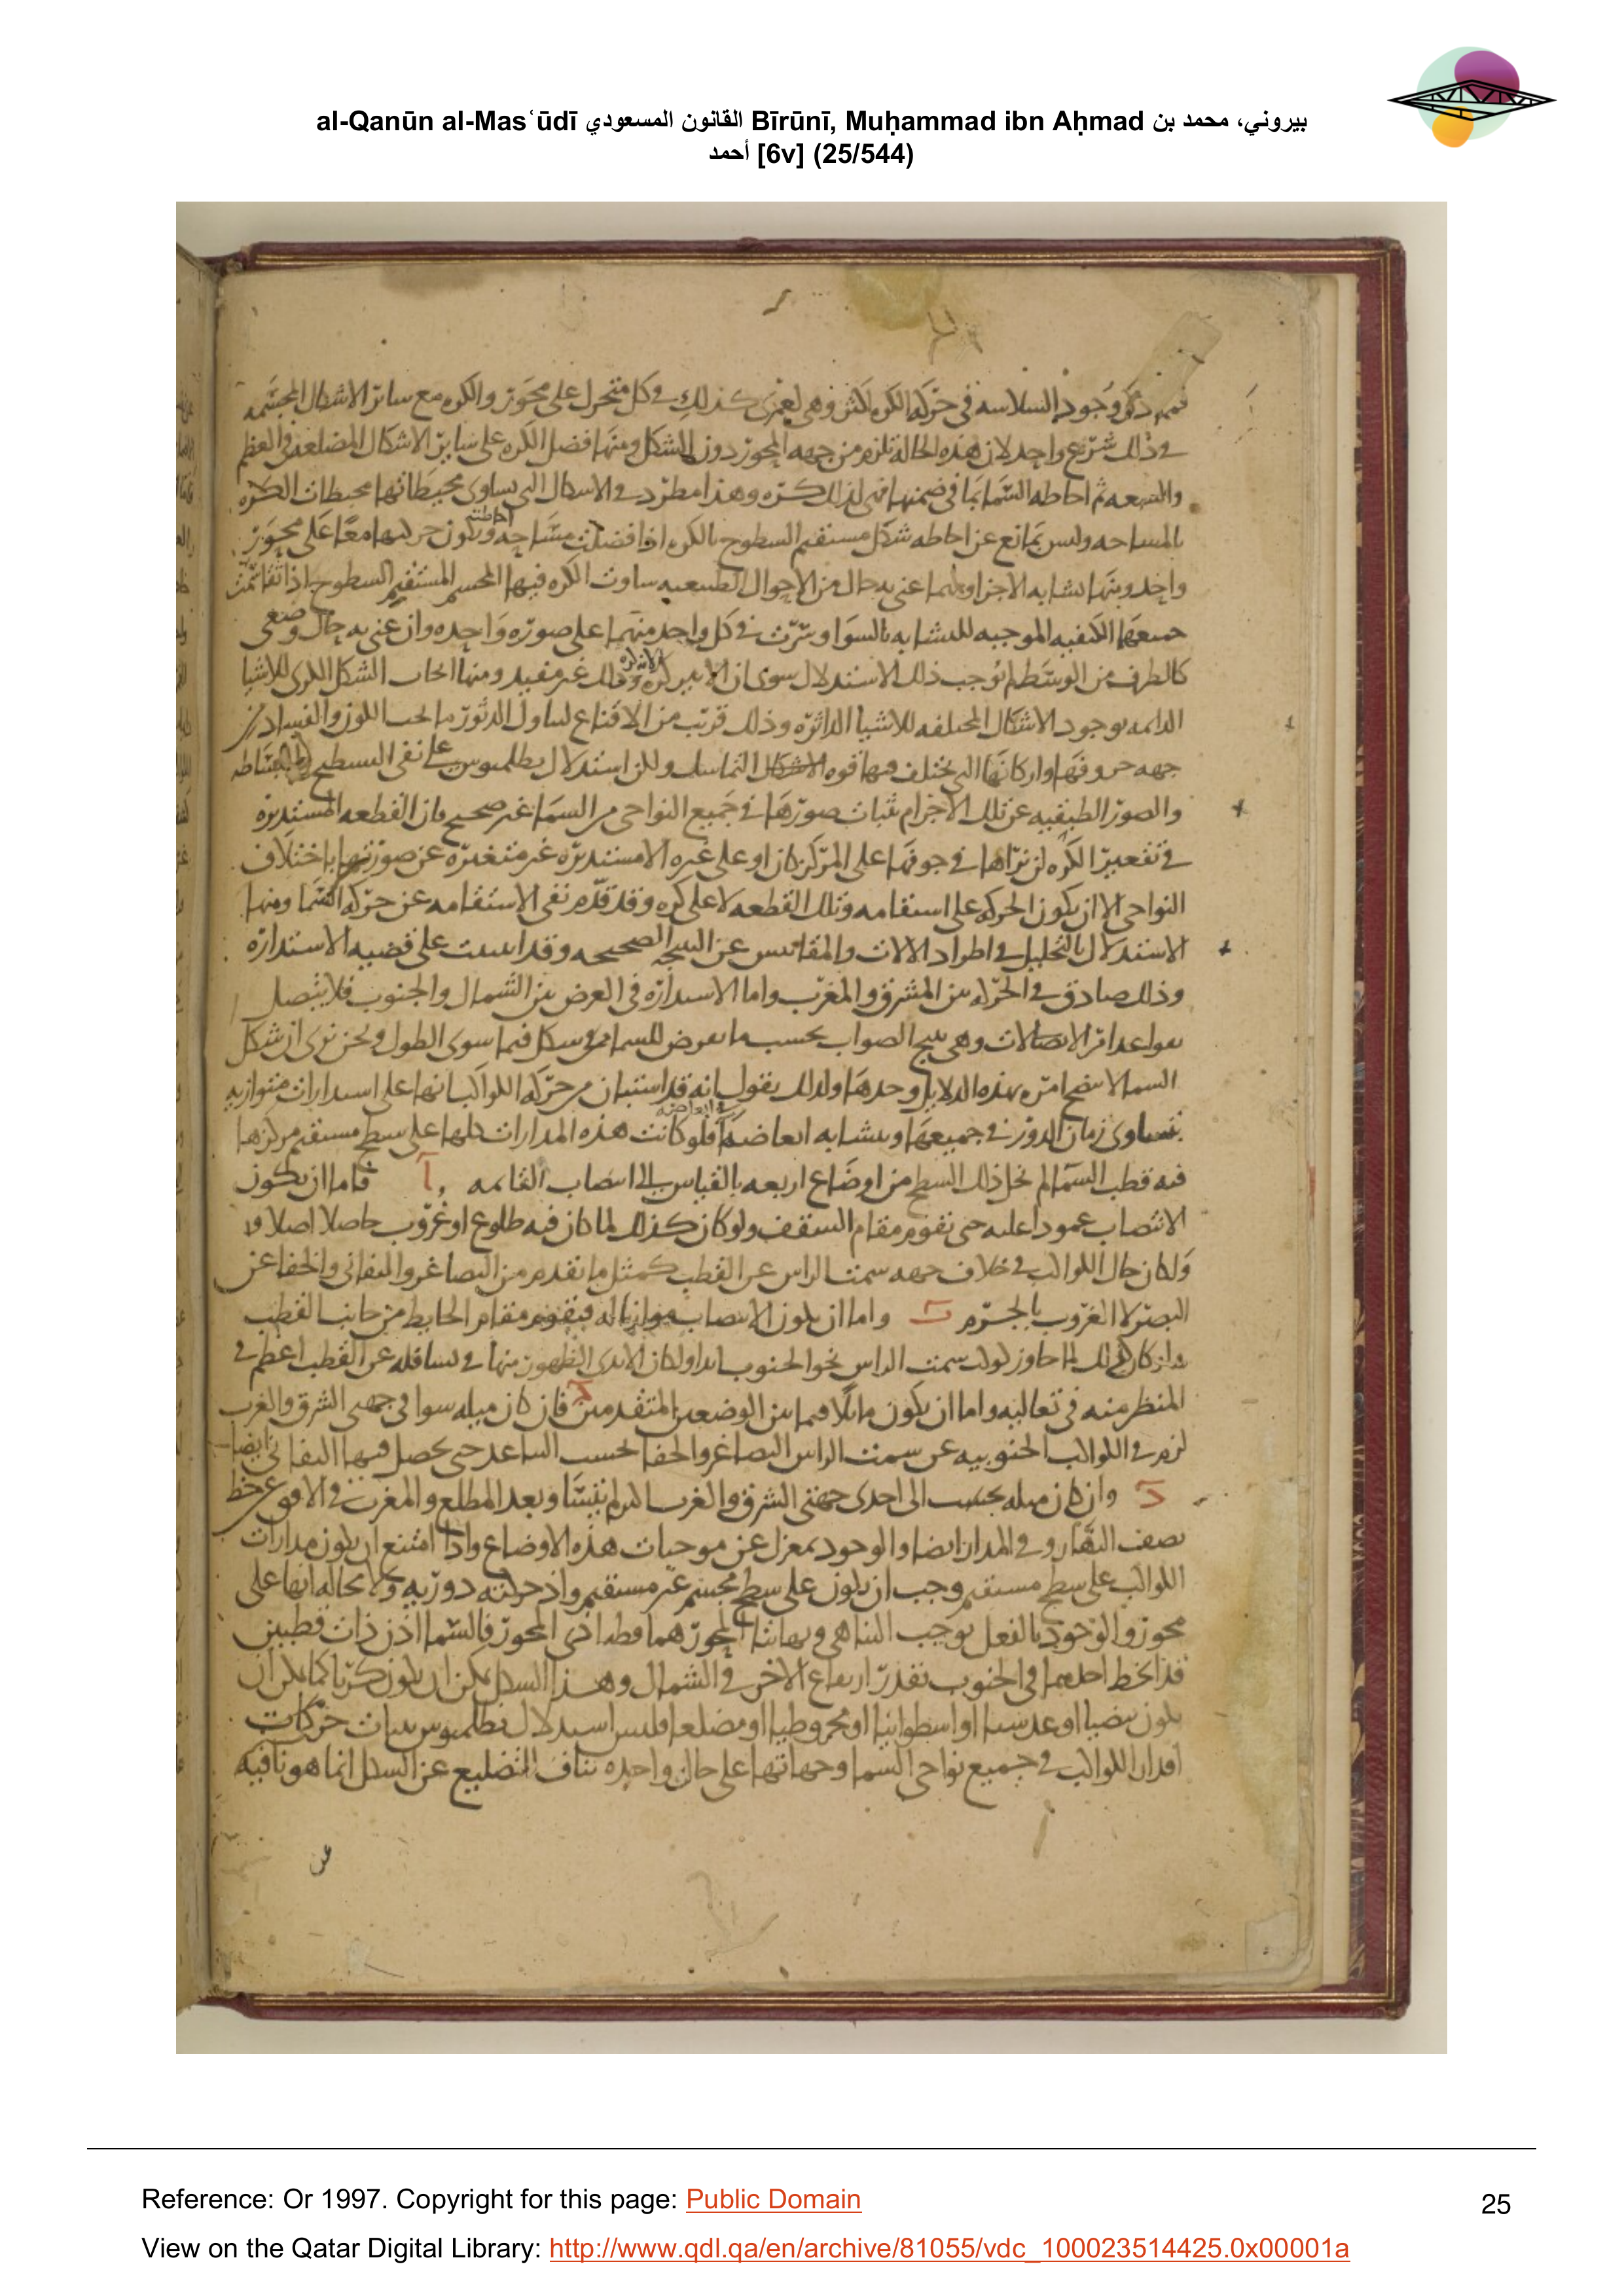 al-Qanūn al-Masʿūdī القانون المسعودي Bīrūnī, Muḥammad ibn Aḥmad بيروني، محمد بن
أحمد [6v] (25/544)
وجود السلاسه في حركه الكره اكثر وهى لعمرى كذلك في كل متحرك على محور والكره مع سائر الاشكال المجسمه
في ذلك شرع واحد لان هذه الحاله تلزم من جهه المحور دون الشكل ومنها فضل الكره على سائر الاشكال المضلعه في العظم
والسعه ثم احاطه السما بما في ضمنها فهى لذلك كره وهذا مطرد في الاشكال التى يساوى محيطاتها محيطات الكره
بالمساحه وليس بمانع عن احاطه شكل مستقيم السطوح بالكره اذا فضلت مساحه احاطته وتكون حركتهما معا على محور
واحد ومنها تشابه الاجزا وانما عنى به حال من الاحوال الطبيعيه ساوت الكره فيها المجسم المستقيم السطوح اذا تقاسمت
جميعها الكيفيه الموجبه للتشابه بالسوا وسرت في كل واحد منهما على صوره واحده وان عنى به حال وضعى
كالطرف من الوسط لم يوجب ذلك الاستدلال سوى ان الاثير كره وذلك غير مفيد ومنها ايجاب الشكل الكرى للاشيا
الدائمه بوجود الاشكال المختلفه للاشيا الداثره وذلك قريب من الاقناع الكون والفساد من
جهه حروفها واركانها التى تختلف فيها قوه التماسك ولكن استدلال بطلميوس على نفى التسطيح
والصور الطبيعيه عن تلك الاجرام بثبات صورها في جميع النواحى من السما غير صحيح فان القطعه المستديره
في تقعير الكره لن تراها في جوفها على المركز كان او على غيره الا مستديره غير متغيره عن صورتها باختلاف
النواحى الا ان يكون الحركه على استقامه وتلك القطعه لا على كره وقد قدم نفى الاستقامه عن حركه السما ومنها
الاستدلال بالتحليل في اطراد الالات والمقاييس عن النتيجه الصحيحه وقد اسست على قضيه الاستداره
وذلك صادق في الحركه بين المشرق والمغرب واما الاستداره في العرض بين الشمال والجنوب فلا يتصل
وهى نتيج الصواب بحسب ما يعرض للسما من شكل فيما سوى الطول ونحن نرى ان شكل
السما لا يتضح امره بهذه الدلايل وحدها ولذلك نقول انه قد استبان من حركه الكواكب انها على استدارات متوازيه
بتساوى زمان الدور في جميعها وتشابه ابعاضها فلو كانت هذه المدارات كلها على سطح مستقيم مركزها
فيه قطب السما لم يخل ذلك السطح من اوضاع اربعه بالقياس الى انتصاب القامه ا فاما ان يكون
الانتصاب عمودا عليه حتى تقوم مقام السقف ولو كان كذلك لما كان فيه طلوع او غروب حاصلا اصلا
ولكان حال الكواكب في خلاف جهه سمت الراس عن القطب كمثل ما تقدم من التصاغر والتفانى والخفا عن
البصر لا الغروب بالجرم ب واما ان يكون الانتصاب موازيا له فيقوم مقام الحايط من جانب القطب
كوكب سمت الراس نحو الجنوب ابدا ولكان عن القطب اعظم في
المنظر منه في تعاليه واما ان يكون مائلا فيما بين الوضعين المتقدمين ج فان كان ميله سوا في جهتى الشرق والغرب
لزم في الكواكب الجنوبيه عن سمت الراس التصاغر والخفا بحسب التباعد حتى يحصل فيها التفانى ايضا
د وان كان ميله بحسب الى احدى جهتى الشرق والغرب لم يتساو بعد المطلع والمغرب في الافق عن خط
نصف النهار وفي المدار ايضا والوجود بمعزل عن موجبات هذه الاوضاع واذا امتنع ان يكون مدارات
الكواكب على سطح مستقيم وجب ان يكون على سطح مجسم غير مستقيم واذ حركته دوريه ولا محاله انها على
محور والوجود بالفعل يوجب التناهى ونهايتا المحور هما قطبا ذى المحور فالسما اذن ذات قطبين
قد انحط احدهما في الجنوب بقدر ارتفاع الاخر في الشمال وهذا الشكل يمكن ان يكون كريا كما يمكن ان
يكون بيضيا او عدسيا او اسطوانيا او مخروطيا او مضلعا فليس استدلال بطلميوس بثبات حركات
اقدار الكواكب في جميع نواحى السما وجهاتها على حال واحده بناف التضليع عن الشكل انما هو نافيه
عن
Reference: Or 1997. Copyright for this page: Public Domain
25
View on the Qatar Digital Library: http://www.qdl.qa/en/archive/81055/vdc_100023514425.0x00001a